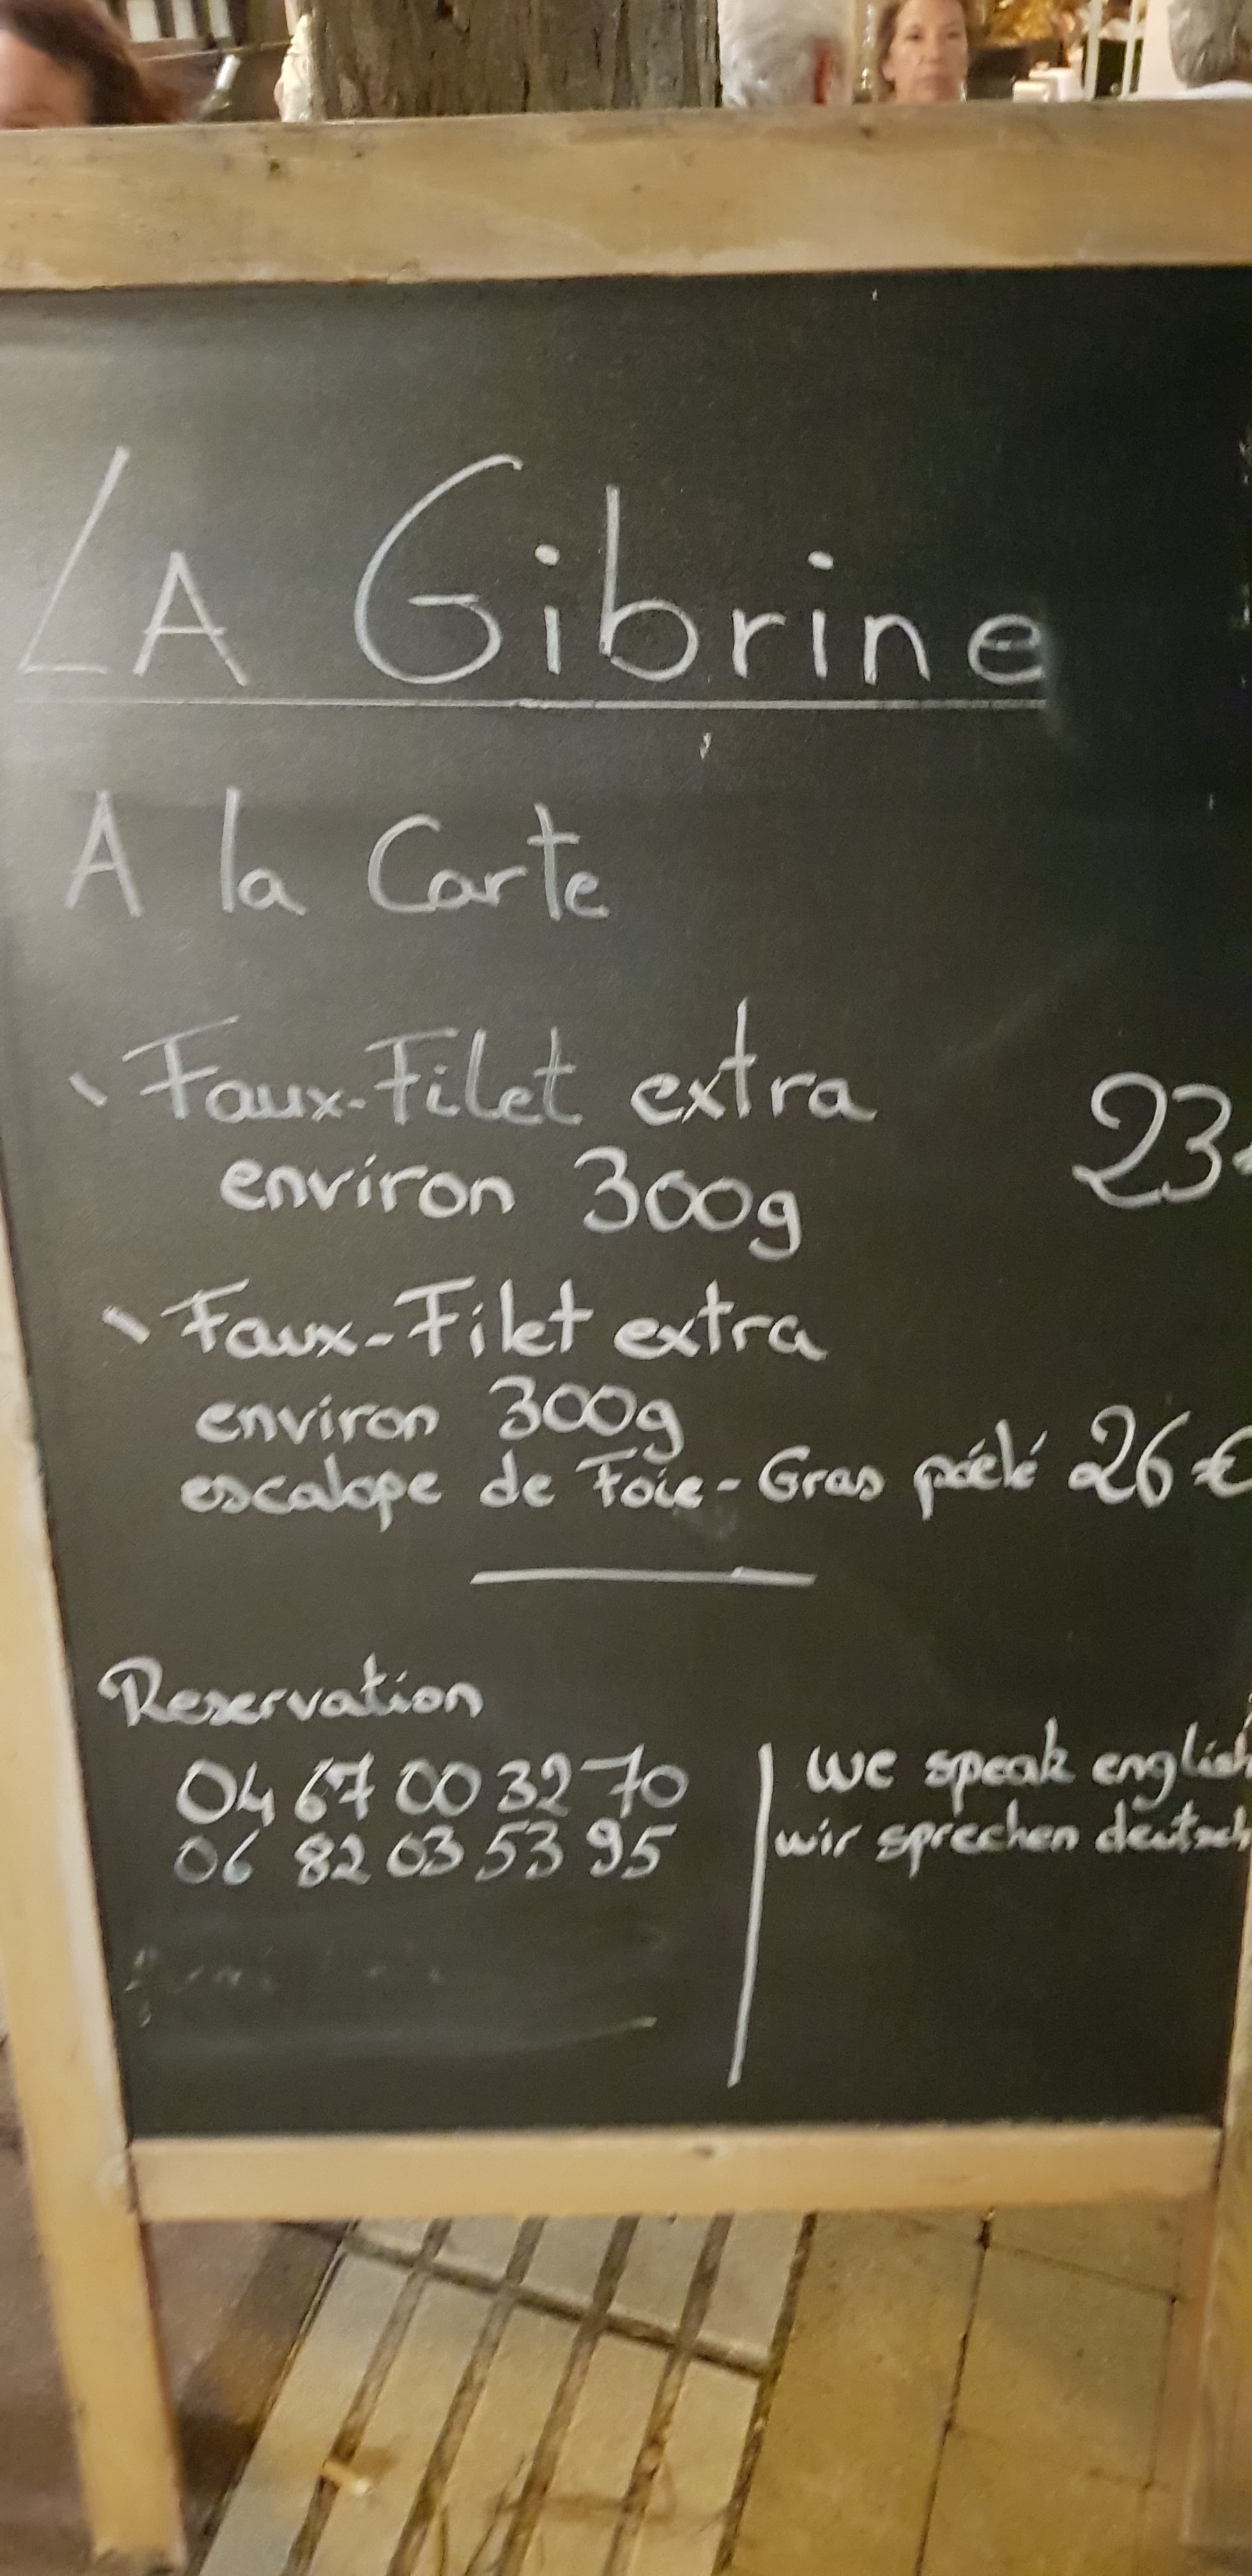 LA Gibrine
A la Carte
Faux-Filet extra
environ 300g
23€
Faux-Filet extra
environ 300g
escalope de Foie-Gras pöélé 26€
Reservation
04 67 00 32 70
06 82 03 53 95
we speak english
wir sprechen deutsch